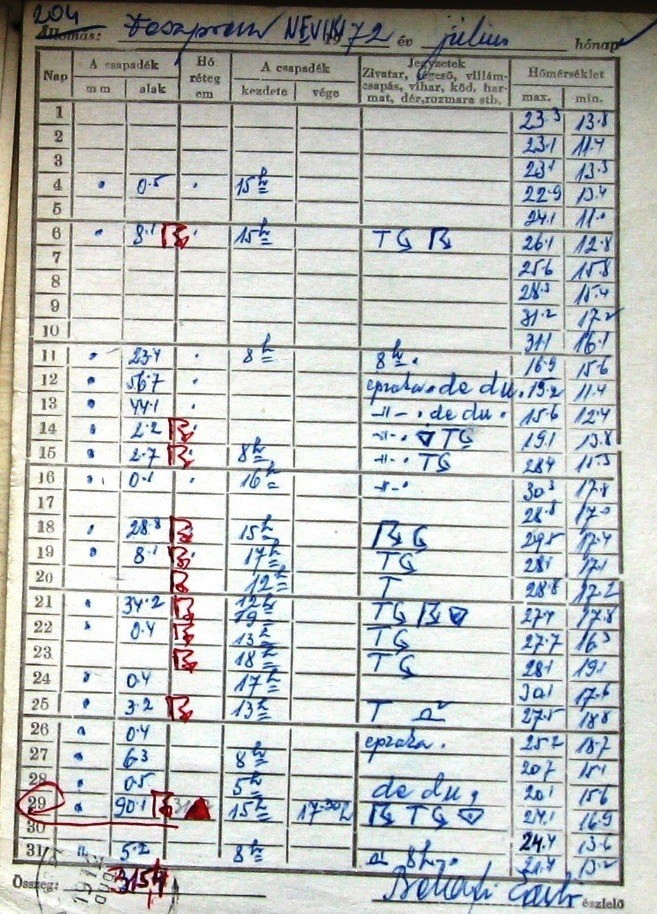 204
Állomás: Veszprém 1972 év július hónap
Nap A csapadék Hó réteg cm A csapadék Jegyzetek Zivatar, jégeső, villámcsapás, vihar, köd, harmat, dér, rozmara stb. Hőmérséklet
mm alak kezdete vége max. min.
1 23.3 13.8
2 23.1 11.4
3 23.1 13.3
4 0.5 15h 22.9 13.4
5 24.1 11.0
6 8.1 15h 26.1 12.8
7 25.6 15.8
8 28.3 15.4
9 31.2 17.2
10 31.1 16.1
11 23.4 8h 8h 16.9 15.6
12 56.7 de du. 19.2 11.4
13 44.1 -"- de du. 15.6 12.4
14 2.2 -"- 19.1 13.8
15 2.7 8h -"- 28.4 11.3
16 0.1 16h -"- 30.3 17.8
17 28.8 17.0
18 28.8 15h 29.5 17.4
19 8.1 17h 28.1 17.1
20 12h T 28.8 17.2
21 34.2 12h 19h 27.4 17.8
22 0.4 13h 27.7 16.3
23 18h 28.1 19.1
24 0.4 17h 30.1 17.6
25 3.2 13h T 27.5 18.8
26 0.4 25.2 18.7
27 6.3 8h 20.7 15.1
28 0.5 5h de du, 20.1 15.6
29 90.1 15h 17.30h 24.1 16.9
30 24.4 13.6
31 5.2 8h 8h 21.4 13.2
Összeg: 315.4 észlelő